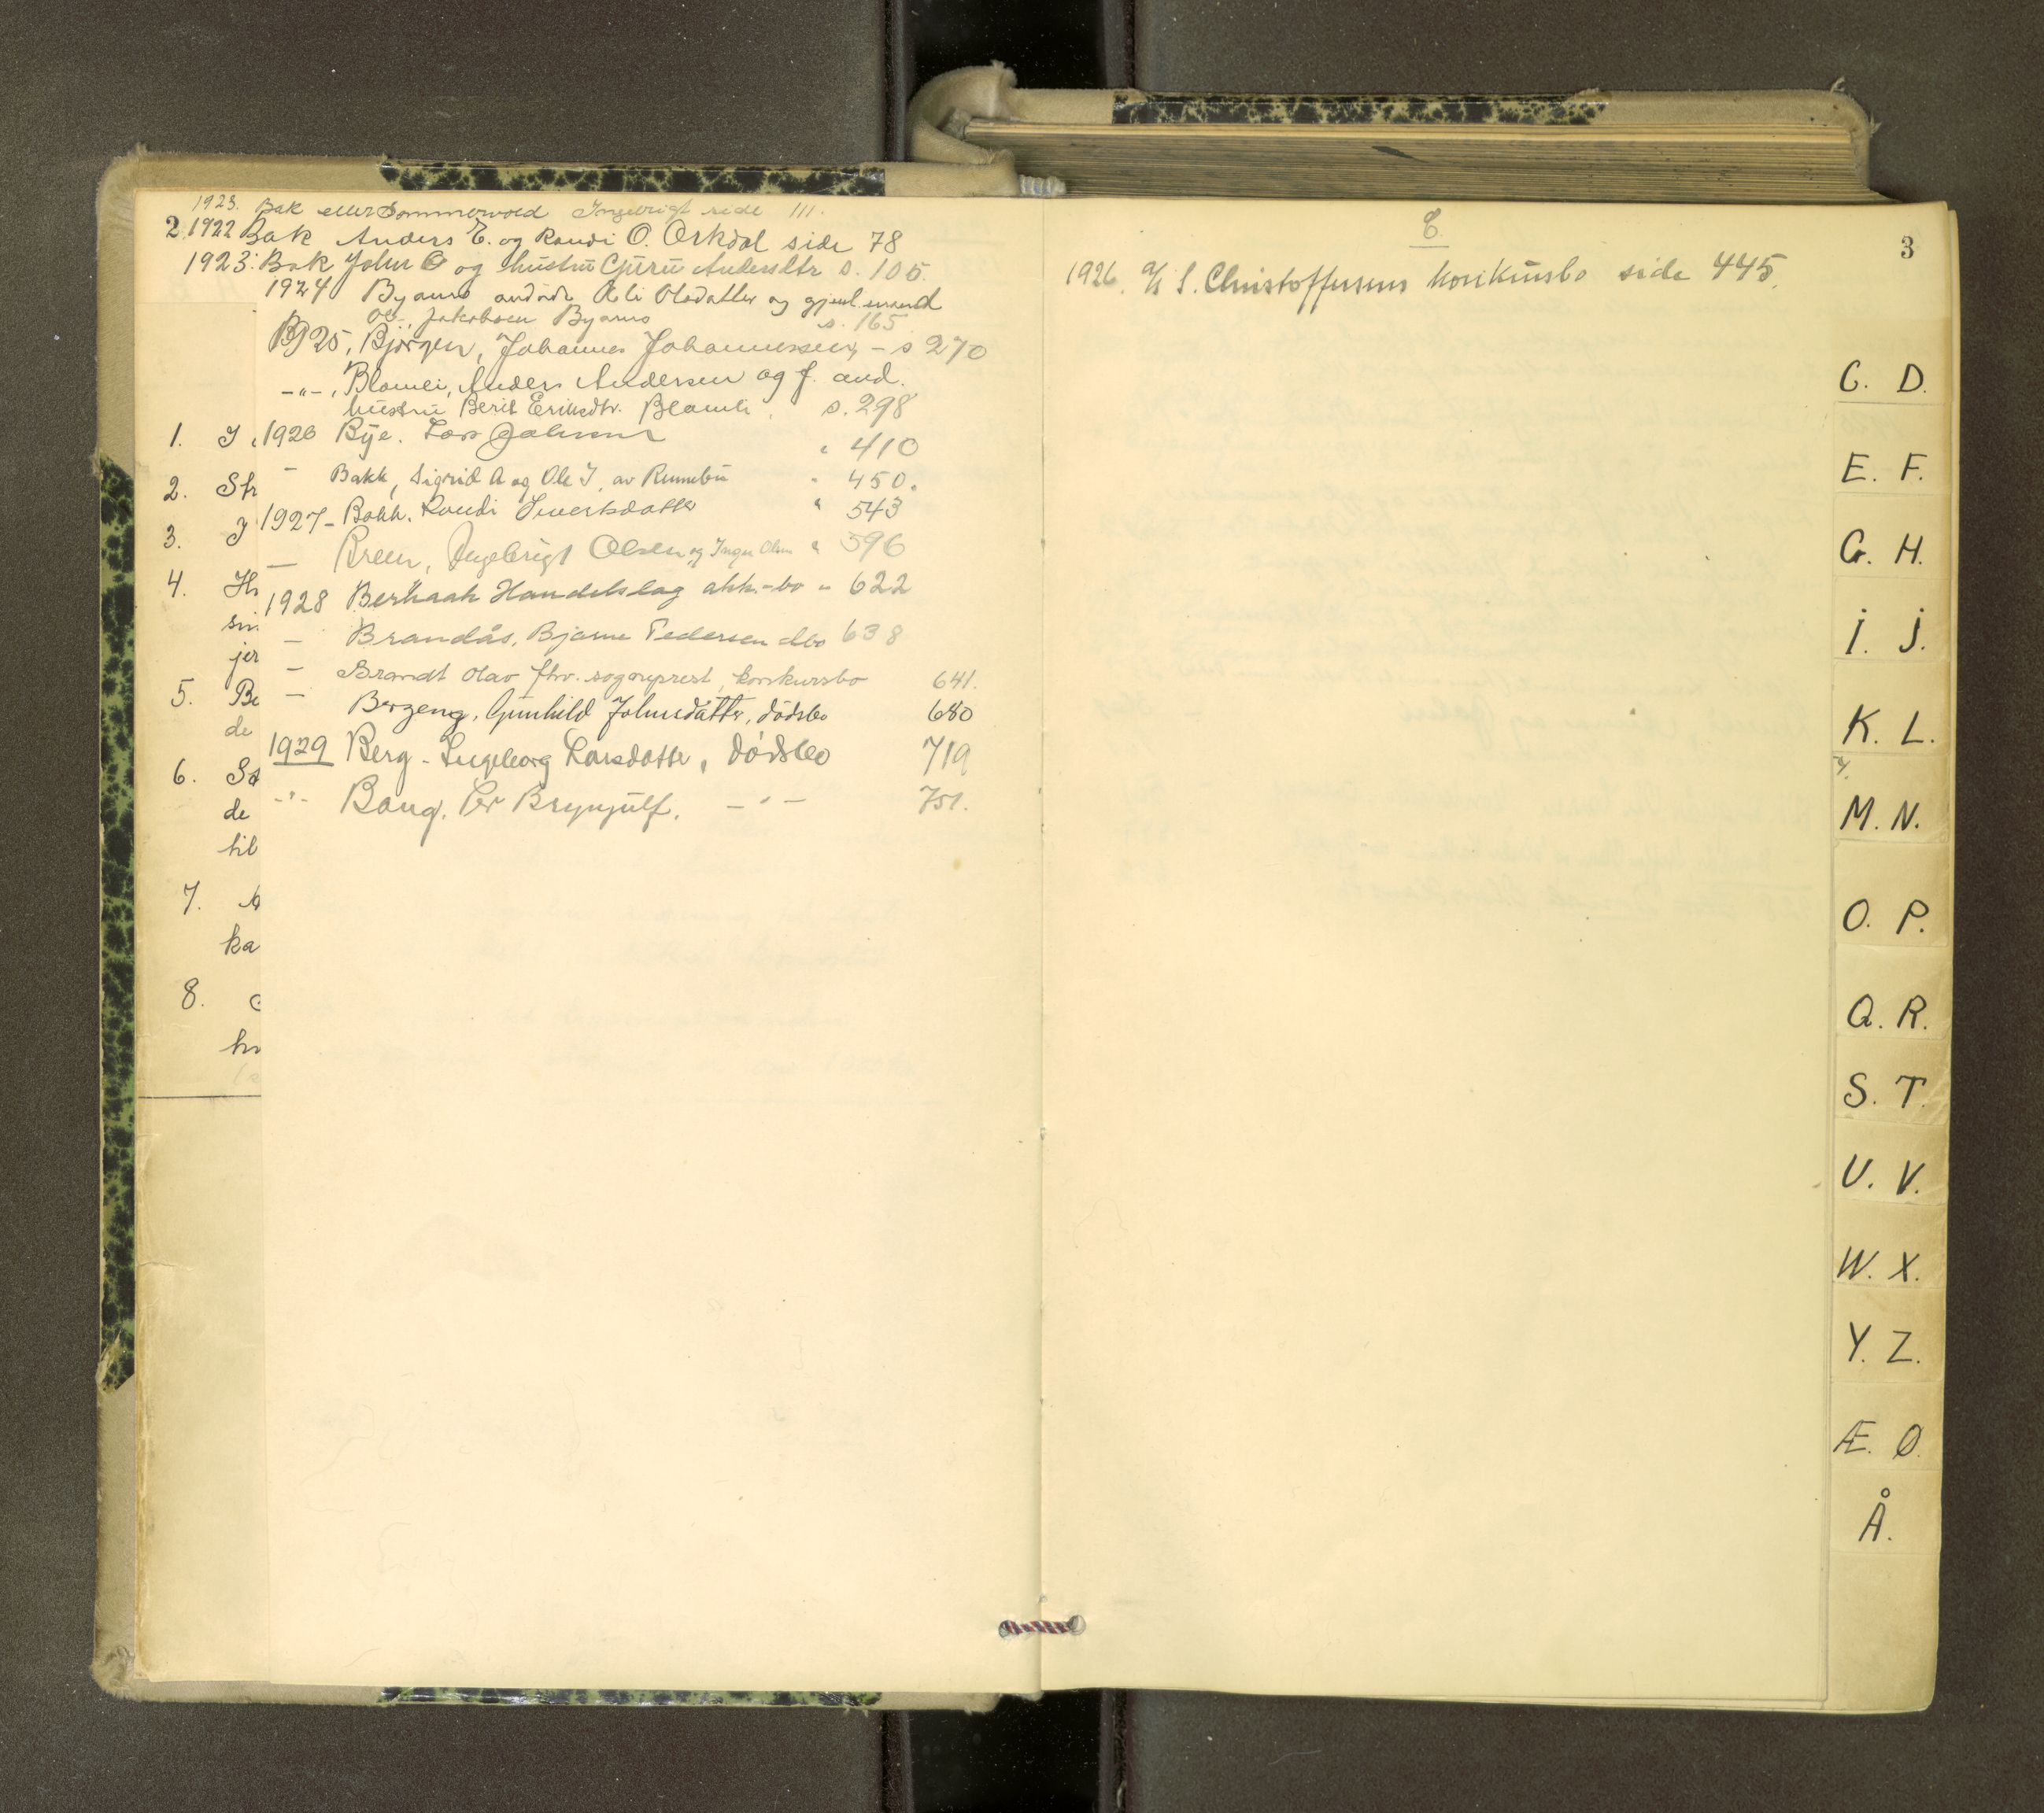 1923. Bak eller Sommervold Ingebrigt side 111.
2 1922 Bak Anders E. og Randi O. Orkdal side 78
1923. Bak John O og hustru Guru Andersdtr s. 105.
1924 Byanes avdøde Olsdatter og gjenl. mand
Jakobsen Byanes s. 165
1925, Bjørgen, Johannes Johannessen, - s 270
-"-, Blomli, Anders Andersen og f. avd.
hustru Berit Eriksdtr. Blomli, s. 298
1926 Bye. Lars Johnsen " 410
- Bakk, Sigrid A og Ole J. av Rennebu " 450.
1927 - Bakk. Randi Sivertsdatter " 543
— Breen, Ingebrigt Olsen og Inger Olsen " 596
1928 Berkaak Handelslag akk.-bo " 622
— Brandås, Bjarne Pedersen dbo 638
— Brandt Olav fhv. sogneprest, konkursbo 641.
— Berzeng, Gunhild Johnsdatter, dødsbo 680
1929 Berg - Ingeborg Larsdatter, dødsbo 719
-"- Bang, Per Brynjulf. -"- 751.
1. J
2. St
3. J
4. Hr
sin
jer
5. Be
de
6. Sø
de
til
7.
ka
8.
hv
C.
3
1926. A/S S. Christoffersens konkursbo side 445.
C. D.
E. F.
G. H.
I. J.
K. L.
M. N.
O. P.
Q. R.
S. T.
U. V.
W. X.
Y. Z.
Æ. Ø.
Å.